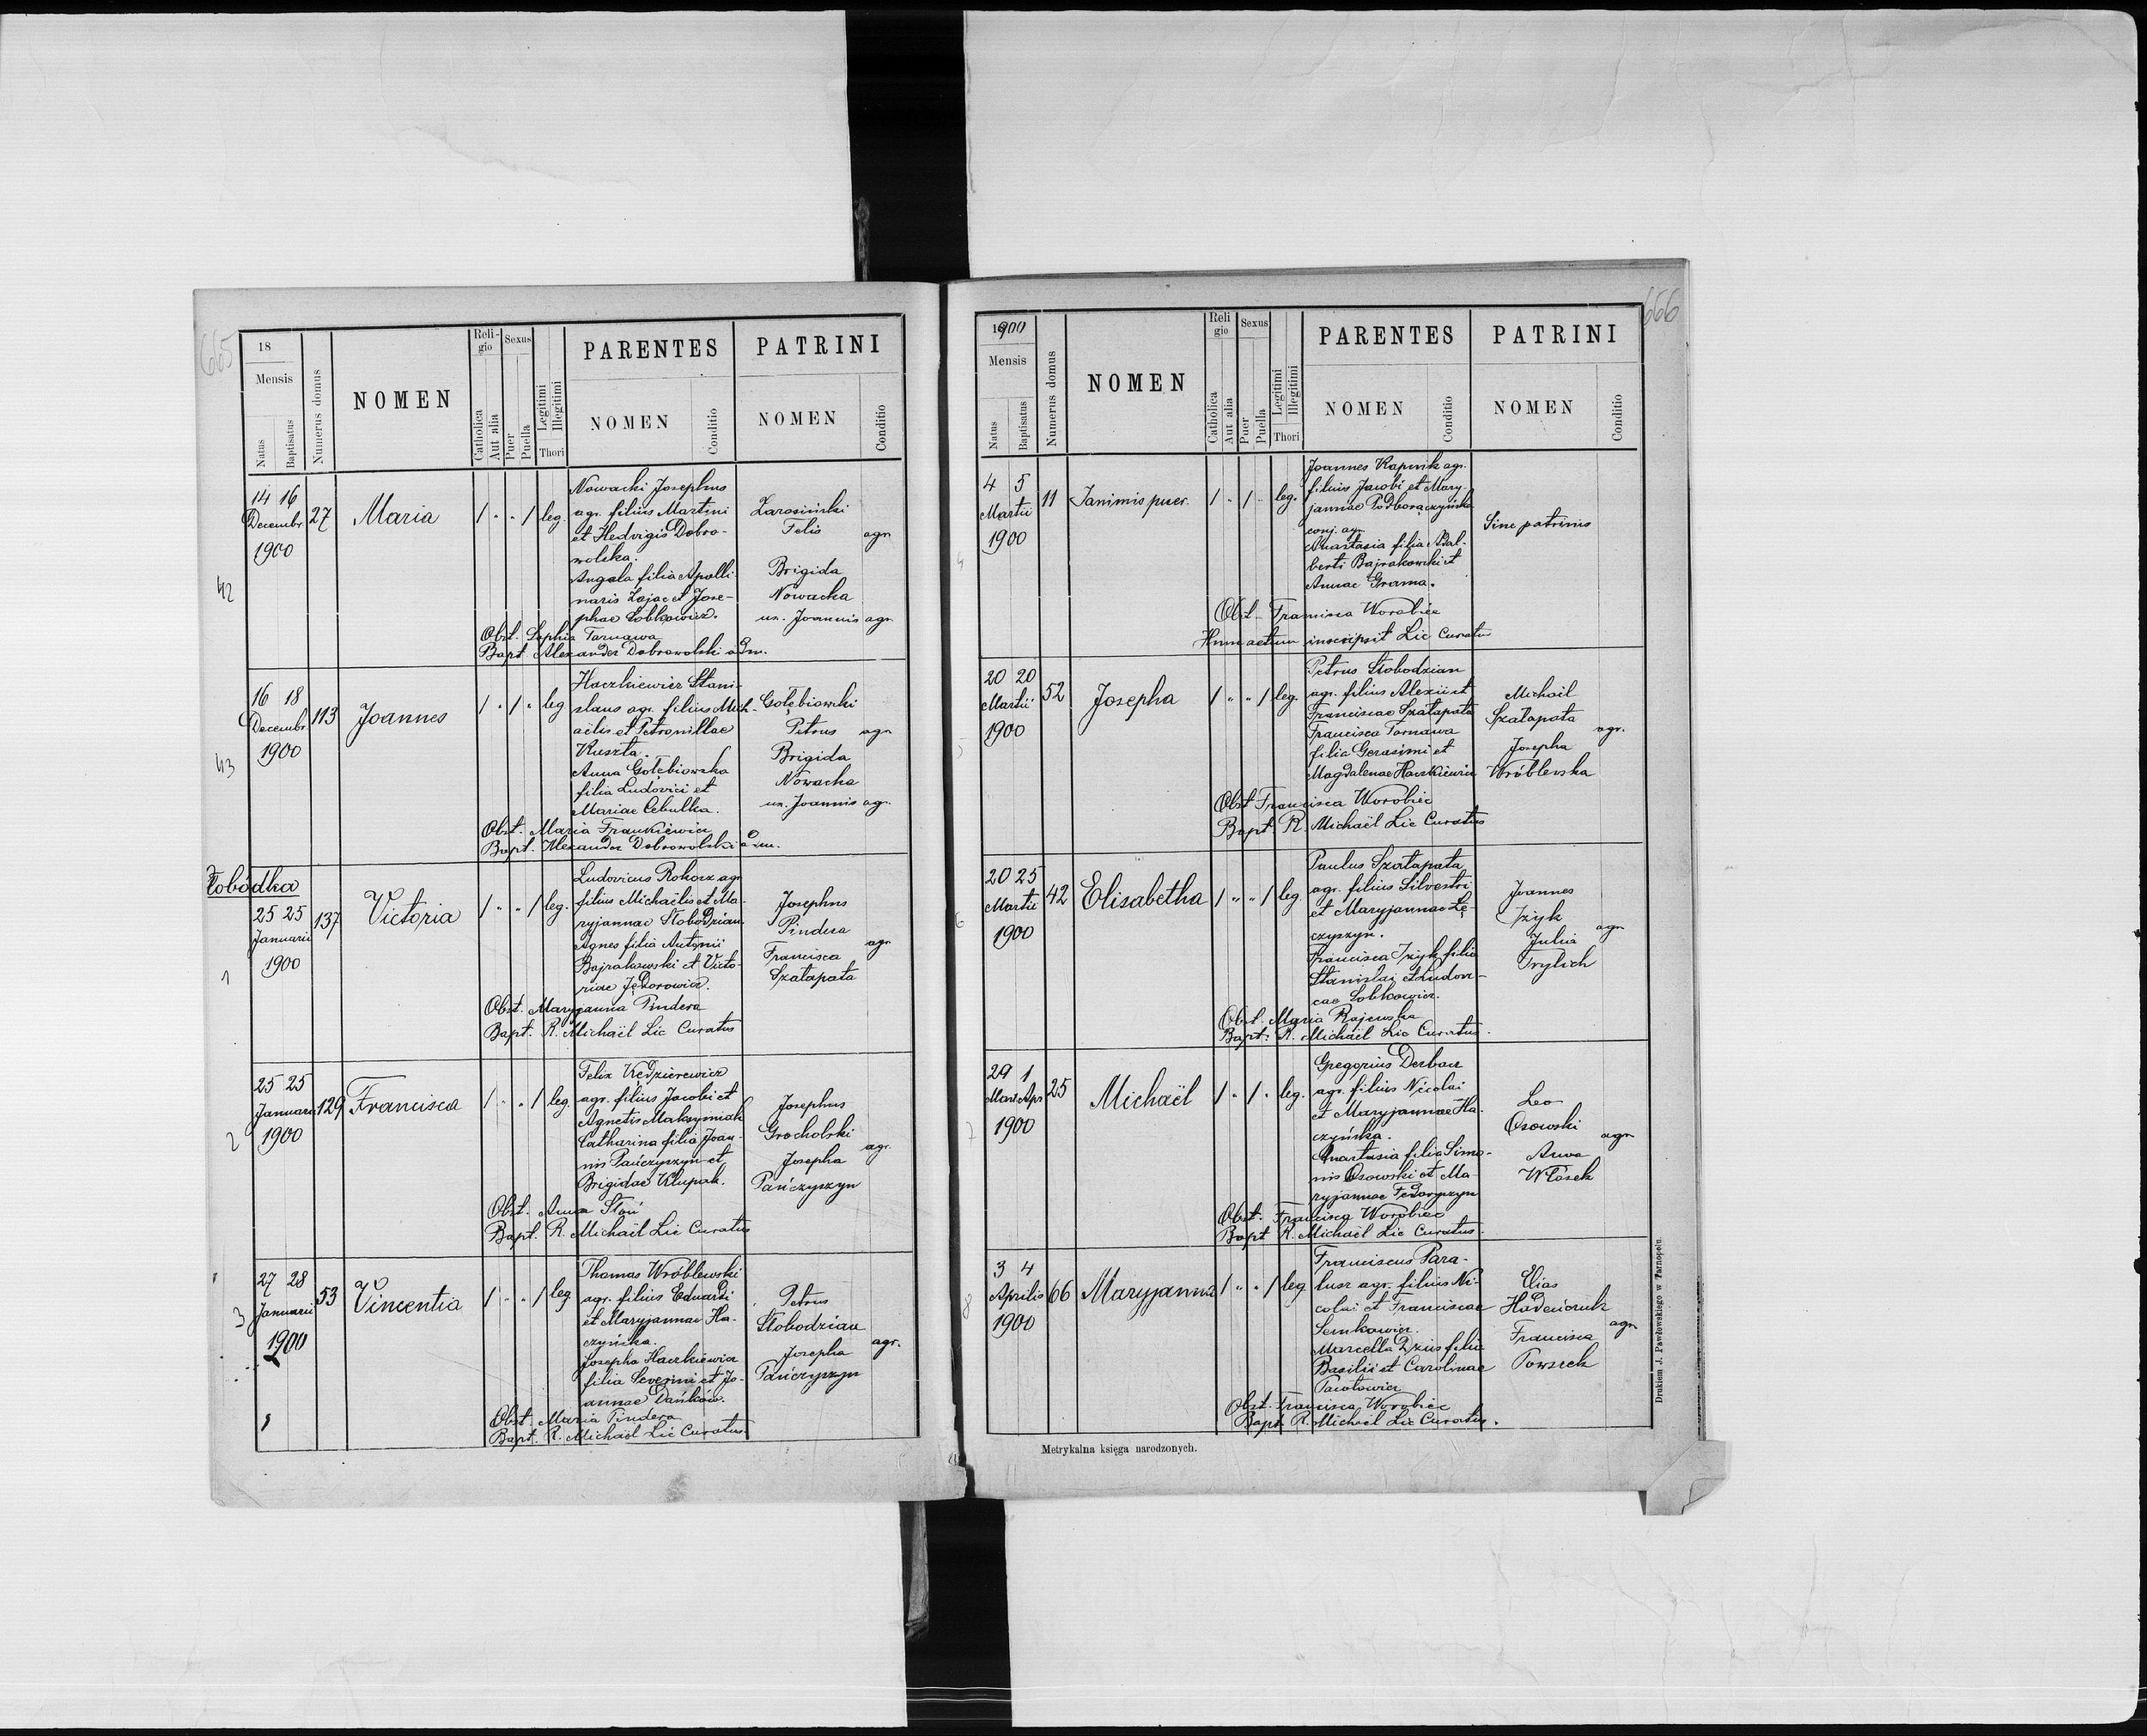 665
18
Mensis
Natus
Baptisatus
Numerus domus
NOMEN
Reli-
gio
Catholica
Aut alia
Sexus
Puer
Puella
Legitimi
Illegitimi
Thori
PARENTES
NOMEN
Conditio
PATRINI
NOMEN
Conditio
42
14 16
Decembr.
1900
27
Maria
/ " " / leg.
Nowacki Josephus
agr. filius Martini
et Hedvigis Dobro-
wolska.
Angela filia Apolli-
naris Zając et Jose-
phae Sobkowicz.
Zarosiński
Felis
agr.
Brigida
Nowacka
ux. Joannis agr.
Obst. Sophia Tarnawa
Bapt. Alexander Dobrowolski adm.
43
16 18
Decembr.
1900
113
Joannes
/ " / " leg
Haczkiewicz Stani-
slaus agr. filius Mich-
aelis et Petronillae
Kuszta.
Anna Gołębiowska
filia Ludovici et
Mariae Cebulka.
Gołębiowski
Petrus
agr.
Brigida
Nowacka
ux. Joannis agr.
Obst. Maria Frankiewicz
Bapt. Alexander Dobrowolski adm.
Łobódka
1
25 25
Januarii
1900
137
Victoria
/ " " / leg.
Ludovicus Rokosz agr
filius Michaëlis et Ma-
ryjannae Słobodzian
Agnes filia Antonii
Bajrakowski et Victo-
riae Jędorowicz.
Josephus
Pindera
agr
Francisca
Szałapata
Obst. Maryjanna Pindera
Bapt. R. Michaël Lic Curatus
2
25 25
Januarii
1900
129
Francisca
/ " " / leg.
Felix Kędzierewicz
agr. filius Jacobi et
Agnetis Maksymiak
Catharina filia Joan-
nis Pańczyszyn et
Brigidae Klupak.
Josephus
Grocholski
agr.
Josepha
Pańczyszyn
Obst. Anna Słoń
Bapt. R. Michaël Lic Curatus
3
27 28
Januarii
1900
53
Vincentia
/ " " / leg
Thomas Wróblewski
agr. filius Eduardi
et Maryjannae Ha-
czyńska.
Josepha Haczkiewicz
filia Severini et Jo-
annae Dańków.
Petrus
Słobodzian
agr.
Josepha
Pańczyszyn
Obst. Maria Pindera
Bapt. R. Michaël Lic Curatus.
666
1900
Mensis
Natus
Baptisatus
Numerus domus
NOMEN
Reli
gio
Catholica
Aut alia
Sexus
Puer
Puella
Legitimi
Illegitimi
Thori
PARENTES
NOMEN
Conditio
PATRINI
NOMEN
Conditio
4
4 5
Martii
1900
11
Inanimis puer.
/ " / " leg.
Joannes Kapnik agr.
filius Jacobi et Mary-
jannae Podhorączyńska
conj. agr.
Anastasia filia Adal-
berti Bajrakowski et
Annae Grama.
Sine patrinis
Obst. Francisca Worobiec
Hunc actum inscripsit Lic Curatus
5
20 20
Martii
1900
52
Josepha
/ " " / leg.
Petrus Słobodzian
agr. filius Alexii et
Franciscae Szałapata
Francisca Tarnawa
filia Gerasimi et
Magdalenae Haczkiewicz
Michaël
Szałapata
agr.
Josepha
Wróblewska
Obst. Francisca Worobiec
Bapt. R. Michaël Lic Curatus
6
20 25
Martii
1900
42
Elisabetha
/ " " / leg
Paulus Szałapata
agr. filius Silvestri
et Maryjannae Lę-
czyszyn.
Francisca Iżyk filia
Stanislai et Ludovi-
cae Sobkowicz.
Joannes
Iżyk
agr
Julia
Trylich
Obst. Maria Rajewska
Bapt. R. Michaël Lic Curatus.
7
29 1
Mart. Apr
1900
25
Michaël
/ " / " leg.
Gregorius Derbacz
agr. filius Nicolai
et Maryjannae Ha-
czyńska.
Anastasia filia Simo-
nis Osowski et Ma-
ryjannae Fedoryszyn
Leo
Osowski
agr
Anna
Włosek
Obst. Francisca Worobiec
Bapt. R. Michaël Lic Curatus.
8
3 4
Aprilis
1900
66
Maryjanna
/ " " / leg
Franciscus Para-
lusz agr. filius Ni-
colai et Franciscae
Semkowicz.
Marcella Dzius filia
Basilii et Carolinae
Pawłowicz
Elias
Hadeńczuk
agr
Francisca
Powszek
Obst. Francisca Worobiec
Bapt. R. Michaël Lic Curatus.
Metrykalna księga narodzonych.
Drukiem J. Pawłowskiego w Tarnopolu.